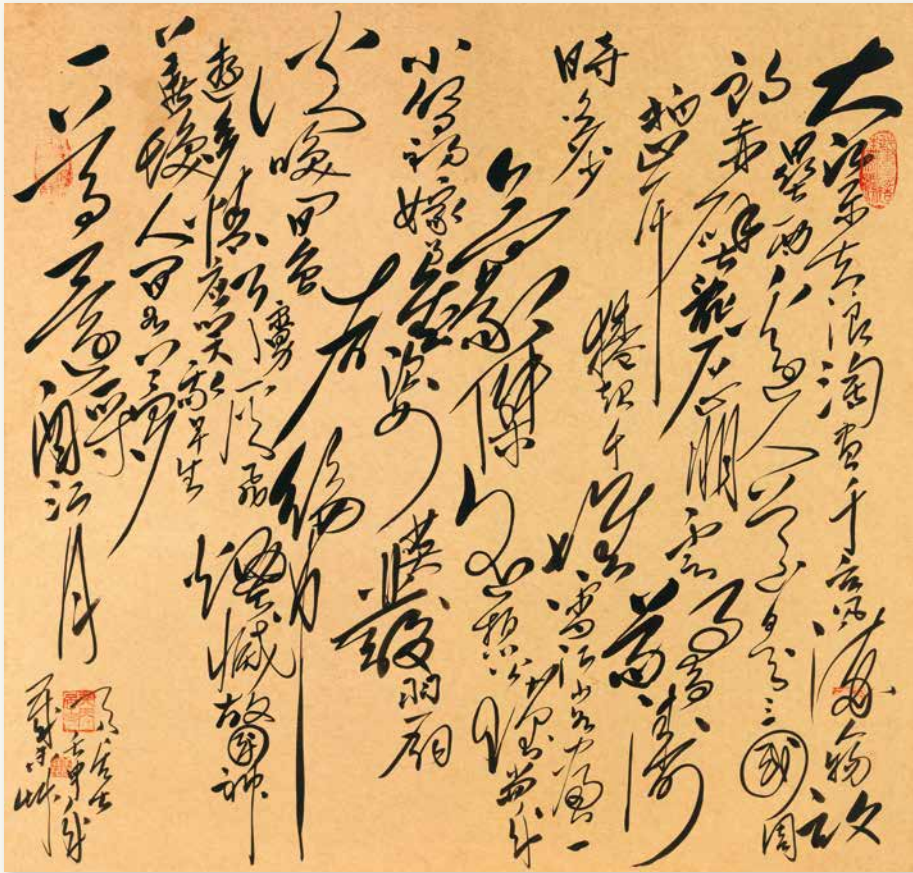 大江东去浪淘尽千古风流人物故
壘西边人道是三國周
郎赤壁亂石崩雲驚濤
裂岸捲起千堆雪江山如畫一
時多少豪傑遥想公瑾當年
小喬初嫁了雄姿英發羽扇
綸巾
談笑間強虜灰飛煙滅故國神
遊多情應笑我早生
華髮人間如夢
一尊還酹江月